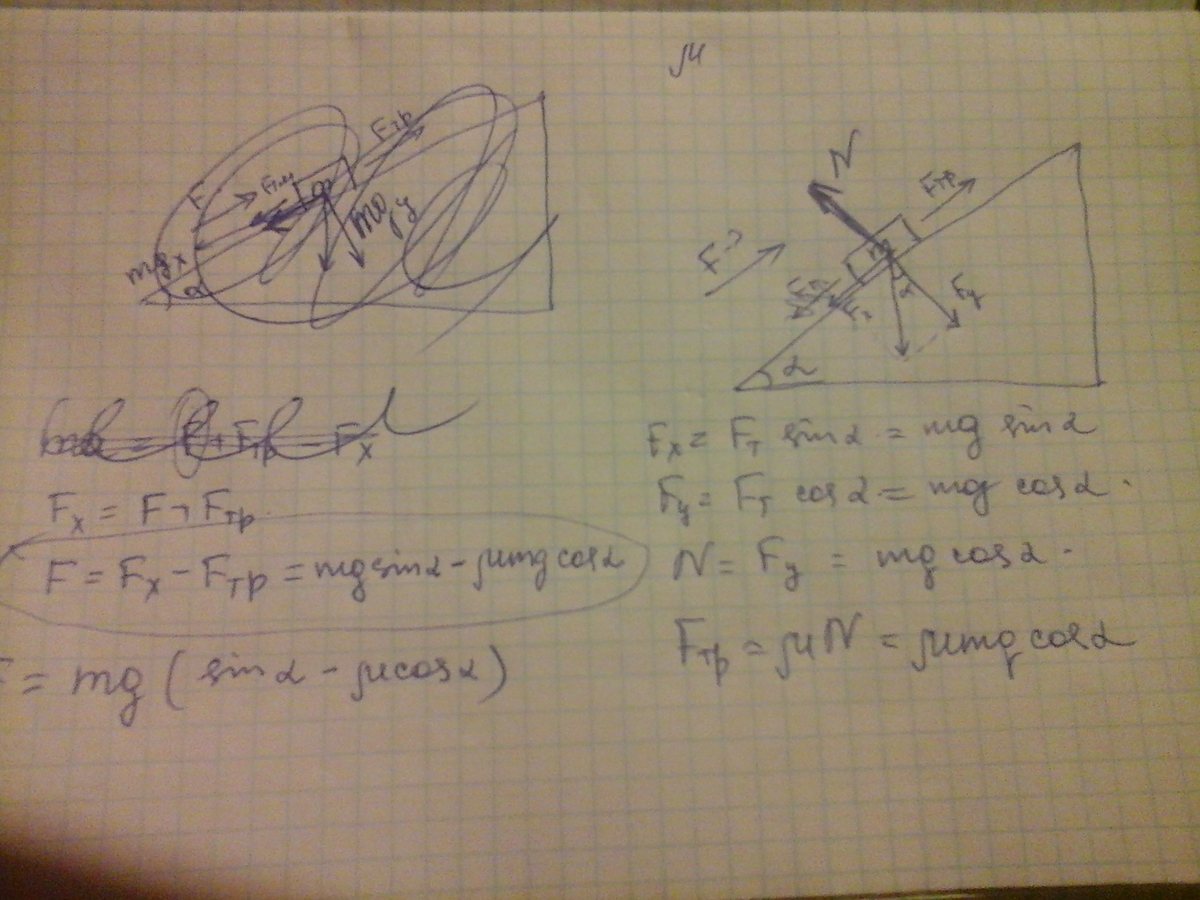 μ
Fтр
F
mgx
α
m
mgy
N
Fтр
F?
m
Fy
Fx
α
Fx = F + Fтр
F = Fx - Fтр = mg sinα - μmg cosα
F = mg ( sinα - μcosα )
Fx = Fт sinα = mg sinα
Fy = Fт cosα = mg cosα.
N = Fy = mg cosα.
Fтр = μN = μmg cosα